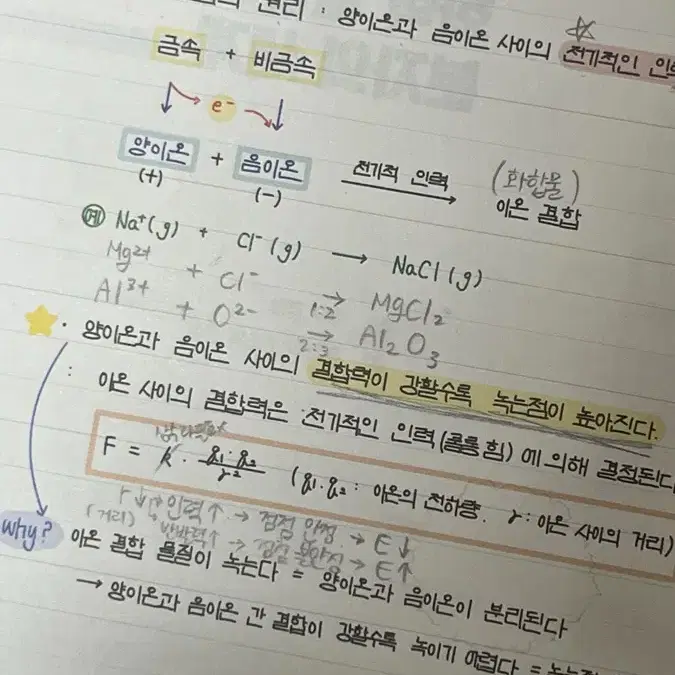 원리 : 양이온과 음이온 사이의 전기적인 인력
금속 + 비금속
e⁻
양이온 + 음이온 전기적 인력 (화합물)
(+) (-) 이온 결합
예 Na⁺(g) + Cl⁻(g) → NaCl(g)
Mg²⁺ + Cl⁻ 1:2→ MgCl₂
Al³⁺ + O²⁻ 2:3→ Al₂O₃
· 양이온과 음이온 사이의 결합력이 강할수록 녹는점이 높아진다.
: 이온 사이의 결합력은 전기적인 인력(쿨롱 힘)에 의해 결정된다
F = k · q₁·q₂/r² (q₁·q₂ : 이온의 전하량. r : 이온 사이의 거리)
r↓ 인력↑ → 점점 안정 → E↓
(거리) 반발력↑ → 점점 불안정 → E↑
Why? 이온 결합 물질이 녹는다 = 양이온과 음이온이 분리된다
→ 양이온과 음이온 간 결합이 강할수록 녹이기 어렵다 =